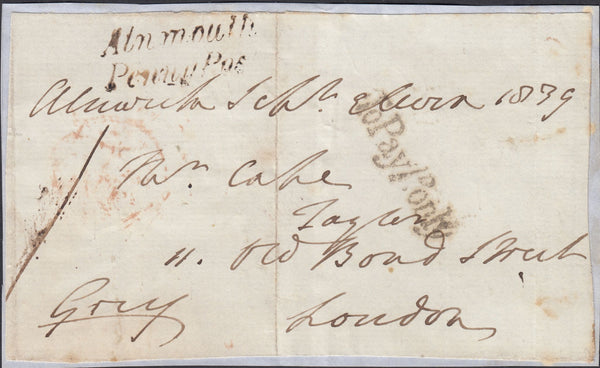 Alnmouth
Penny Post
Alnwick Septr. eleven 1839
To Pay 1d. only
Mr. Cake
Taylor
11. Old Bond Street
Grey London